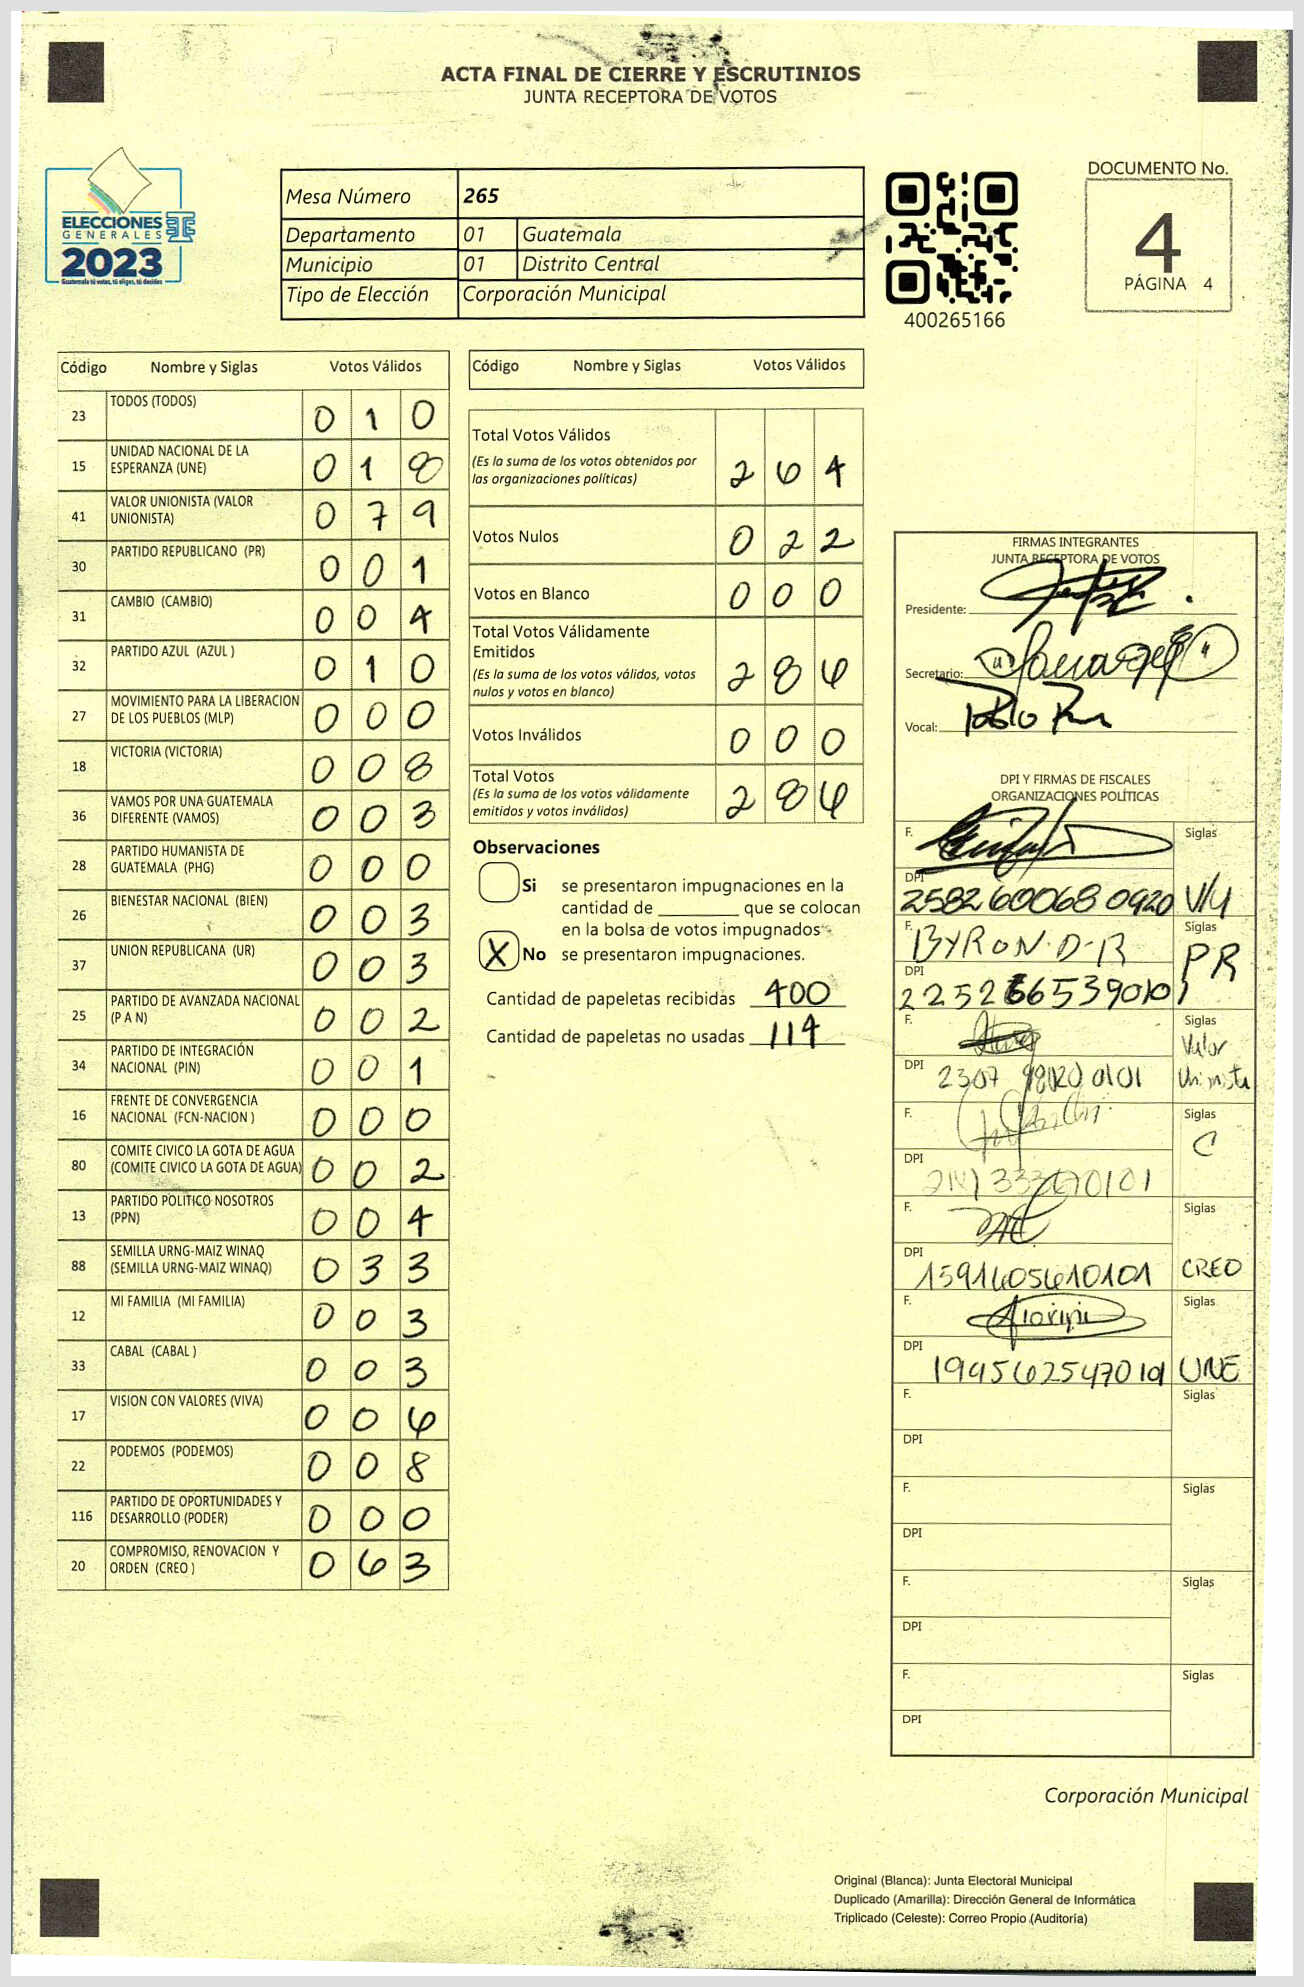 ACTA FINAL DE CIERRE Y ESCRUTINIOS
JUNTA RECEPTORA DE VOTOS
ELECCIONES
GENERALES
2023
Guatemala tú votas, tú eliges, tú decides
Mesa Número 265
Departamento 01 Guatemala
Municipio 01 Distrito Central
Tipo de Elección Corporación Municipal
400265166
DOCUMENTO No.
4
PÁGINA 4
Código Nombre y Siglas Votos Válidos
23 TODOS (TODOS) 0 1 0
15 UNIDAD NACIONAL DE LA ESPERANZA (UNE) 0 1 8
41 VALOR UNIONISTA (VALOR UNIONISTA) 0 7 9
30 PARTIDO REPUBLICANO (PR) 0 0 1
31 CAMBIO (CAMBIO) 0 0 4
32 PARTIDO AZUL (AZUL ) 0 1 0
27 MOVIMIENTO PARA LA LIBERACION DE LOS PUEBLOS (MLP) 0 0 0
18 VICTORIA (VICTORIA) 0 0 8
36 VAMOS POR UNA GUATEMALA DIFERENTE (VAMOS) 0 0 3
28 PARTIDO HUMANISTA DE GUATEMALA (PHG) 0 0 0
26 BIENESTAR NACIONAL (BIEN) 0 0 3
37 UNION REPUBLICANA (UR) 0 0 3
25 PARTIDO DE AVANZADA NACIONAL (P A N) 0 0 2
34 PARTIDO DE INTEGRACIÓN NACIONAL (PIN) 0 0 1
16 FRENTE DE CONVERGENCIA NACIONAL (FCN-NACION ) 0 0 0
80 COMITE CIVICO LA GOTA DE AGUA (COMITE CIVICO LA GOTA DE AGUA) 0 0 2
13 PARTIDO POLITICO NOSOTROS (PPN) 0 0 4
88 SEMILLA URNG-MAIZ WINAQ (SEMILLA URNG-MAIZ WINAQ) 0 3 3
12 MI FAMILIA (MI FAMILIA) 0 0 3
33 CABAL (CABAL ) 0 0 3
17 VISION CON VALORES (VIVA) 0 0 6
22 PODEMOS (PODEMOS) 0 0 8
116 PARTIDO DE OPORTUNIDADES Y DESARROLLO (PODER) 0 0 0
20 COMPROMISO, RENOVACION Y ORDEN (CREO ) 0 6 3
Código Nombre y Siglas Votos Válidos
Total Votos Válidos 2 6 4
(Es la suma de los votos obtenidos por
las organizaciones políticas)
Votos Nulos 0 2 2
Votos en Blanco 0 0 0
Total Votos Válidamente
Emitidos 2 8 6
(Es la suma de los votos válidos, votos
nulos y votos en blanco)
Votos Inválidos 0 0 0
Total Votos 2 8 6
(Es la suma de los votos válidamente
emitidos y votos inválidos)
Observaciones
Si se presentaron impugnaciones en la
cantidad de ________ que se colocan
en la bolsa de votos impugnados
X No se presentaron impugnaciones.
Cantidad de papeletas recibidas 400
Cantidad de papeletas no usadas 114
FIRMAS INTEGRANTES
JUNTA RECEPTORA DE VOTOS
Presidente:
Secretario:
Vocal:
DPI Y FIRMAS DE FISCALES
ORGANIZACIONES POLÍTICAS
F. Siglas
DPI 2582600680920 V/U
F. BYRON D-R Siglas PR
DPI
F. Siglas Valor Unionista
DPI
F. Siglas C
DPI
F. Siglas CREO
DPI 1591605610101
F. Siglas UNE
DPI
F. Siglas
DPI
F. Siglas
DPI
F. Siglas
DPI
F. Siglas
DPI
Corporación Municipal
Original (Blanca): Junta Electoral Municipal
Duplicado (Amarilla): Dirección General de Informática
Triplicado (Celeste): Correo Propio (Auditoría)